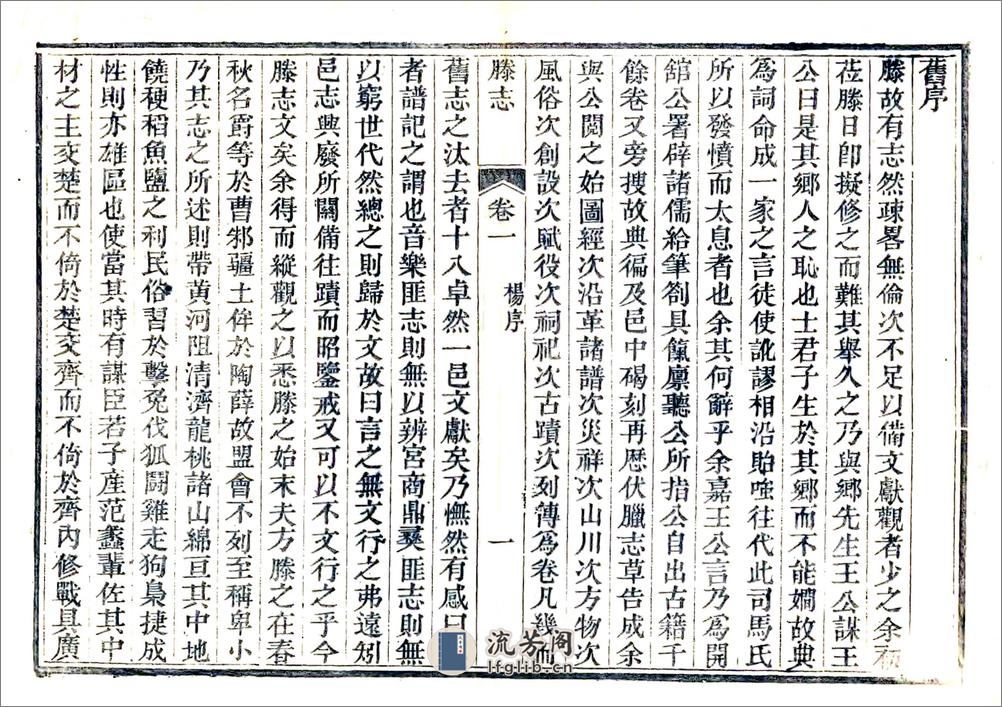 舊序
滕故有志然疎畧無倫次不足以備文獻觀者少之余初
莅滕日卽擬修之而難其舉久之乃與鄉先生王公謀王
公曰是其鄉人之恥也士君子生於其鄉而不能嫺故典
爲詞命成一家之言徒使訛謬相沿貽嗤往代此司馬氏
所以發憤而太息者也余其何辭乎余嘉王公言乃爲開
舘公署辟諸儒給筆劄具餼廪聽公所指公自出古籍千
餘卷又旁搜故典徧及邑中碣刻再歷伏臘志草告成余
與公閱之始圖經次沿革諸譜次災祥次山川次方物次
風俗次創設次賦役次祠祀次古蹟次列傳爲卷凡幾而
滕志 卷一 楊序 一
舊志之汰去者十八卓然一邑文獻矣乃憮然有感曰
者譜記之謂也音樂匪志則無以辨宮商鼎彝匪志則無
以窮世代然總之則歸於文故曰言之無文行之弗遠矧
邑志興廢所關備往蹟而昭鑒戒又可以不文行之乎今
滕志文矣余得而縱觀之以悉滕之始末夫方滕之在春
秋名爵等於曹邾疆土侔於陶薛故盟會不列至稱卑小
乃其志之所述則帶黃河阻清濟龍桃諸山綿亘其中地
饒稉稻魚鹽之利民俗習於擊兔伐狐鬪雞走狗梟捷成
性則亦雄區也使當其時有謀臣若子產范蠡輩佐其中
材之主交楚而不倚於楚交齊而不倚於齊內修戰具廣
流芳阁
lfglib.cn